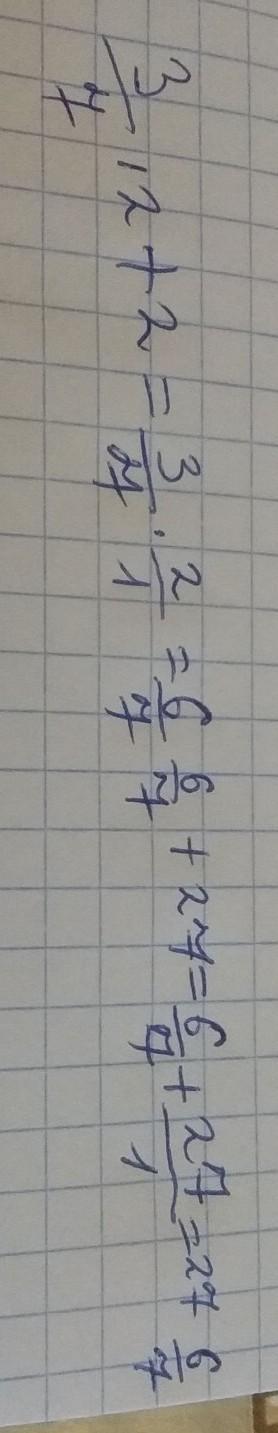 3/7 · 2 + 2 = 3/7 · 2/1 = 6/7 6/7 + 27 = 6/7 + 27/1 = 27 6/7